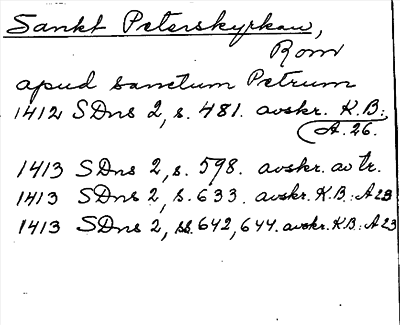 Sankt Peterskyrkan,
Rom
apud sanctum Petrum
1412 SDns 2, s. 481. avskr. K.B:
A. 26.
1413 SDns 2, s. 598. avskr. av tr.
1413 SDns 2, s. 633. avskr. K.B.: A 23
1413 SDns 2, ss. 642, 644. avskr. K.B.: A 23